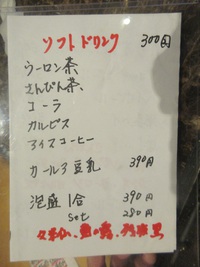 ソフトドリンク 300円
ウーロン茶
さんぴん茶、
コーラ
カルピス
アイスコーヒー
豆乳 390円
泡盛 1合 390円
Set 280円